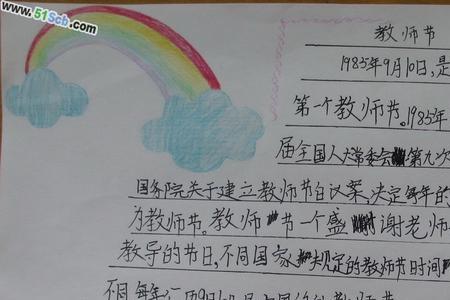 www.51Scb.com
教师节
1985年9月10日,是
第一个教师节。1985年
届全国人大常委会第九次
国务院关于建立教师节的议案,决定每年的
为教师节。教师节一个感谢老师
教导的节日,不同国家规定的教师节时间
不同,每年